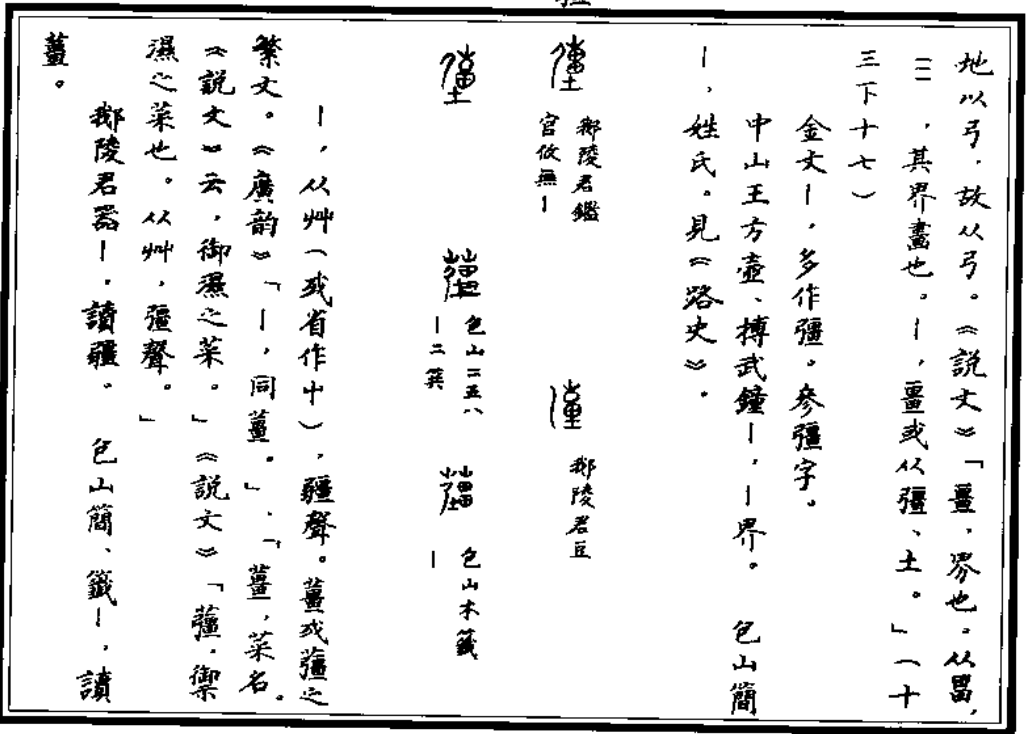 地以弓，故从弓。《説文》「畺，界也。从畕，
三，其界畫也。｜，畺或从彊、土。」（十
三下十七）
金文｜，多作彊。參彊字。
中山王方壺、搏武鐘｜，｜界。包山簡
｜，姓氏。見《路史》。
郪陵君鑑
官攸無｜
郪陵君豆
包山二五八
｜二箕
包山木籤
｜
｜，从艸（或省作屮），疆聲。薑或䕬之
繁文。《廣韵》「｜，同薑。」、「薑，菜名。
《説文》云，御濕之菜。」《説文》「䕬，禦
濕之菜也。从艸，彊聲。」
郪陵君器｜，讀疆。包山簡、籤｜，讀
薑。